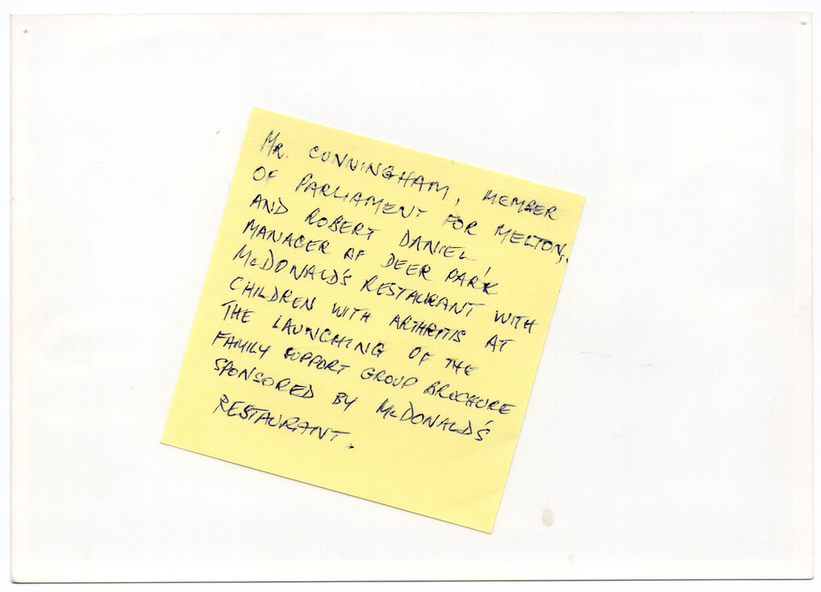 MR. CUNNINGHAM, MEMBER
OF PARLIAMENT FOR MELTON,
AND ROBERT DANIEL,
MANAGER OF DEER PARK
McDONALD'S RESTAURANT WITH
CHILDREN WITH ARTHRITIS AT
THE LAUNCHING OF THE
FAMILY SUPPORT GROUP BROCHURE
SPONSORED BY McDONALD'S
RESTAURANT.